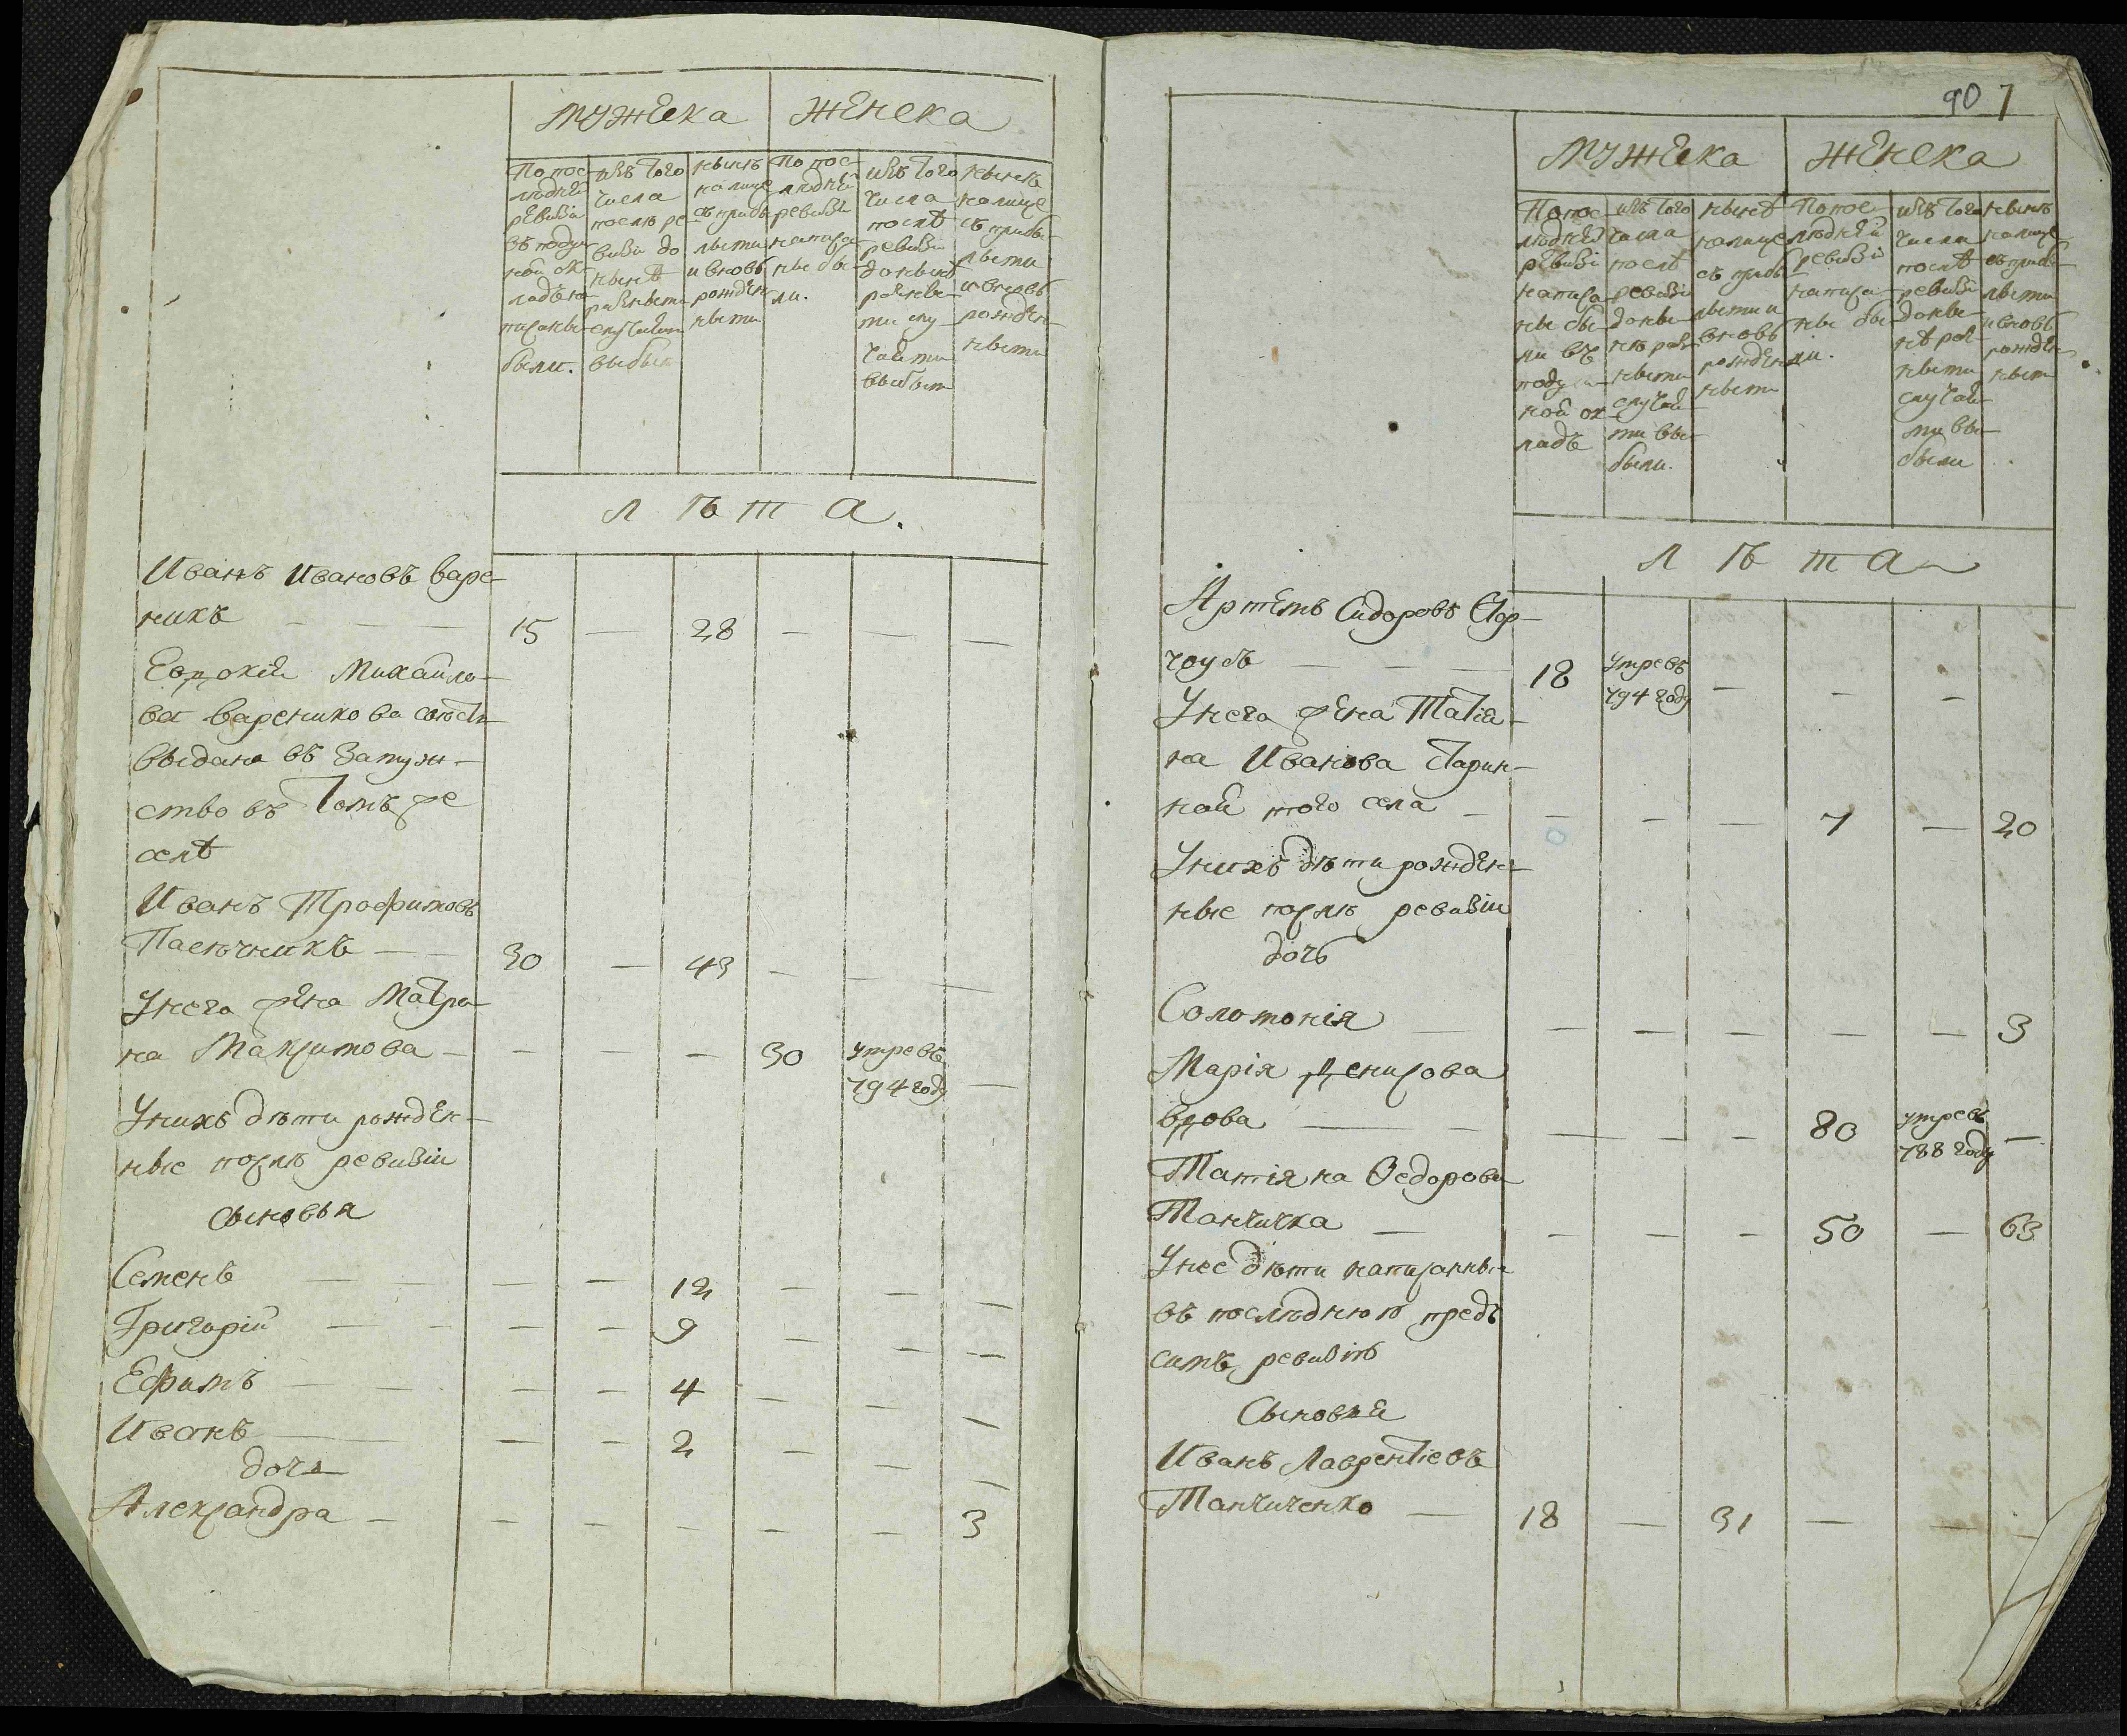 мужеска
женска
По пос-
ледней
ревизии
въ подуш-
ной ок-
ладъ на-
писаны
были.
изъ того
числа
после ре-
визии до
ныне
разными
случаями
выбыл
ныне
налице
съ прибы-
лыми
и вновь
рожден-
ными
По пос-
ледней
ревизии
написа-
ны бы-
ли.
изъ того
числа
после
ревизии
до ныне
разны-
ми слу-
чаями
выбыли
ныне
налице
съ прибы-
лыми
и вновь
рожден-
ными
лѣта.
Иванъ Ивановъ Варе-
никъ — — — 15 — 28 — — —
Михайло-
ва Вареникова
выдана въ замуж-
ство въ томъ же
селѣ
Иванъ Трофимовъ
Пасечникъ — — 30 — 43 — — —
У него жена Матро-
на Максимова — — — — 30 умре въ —
794 году
У нихъ дѣти рожден-
ные послѣ ревизіи
сыновья
Семенъ — — — — 12 — — —
Григорій — — — — 9 — — —
Ефимъ — — — — 4 — — —
Иванъ — — — 2 — — —
дочь
Александра — — — — — — 3
90 7
мужеска
женска
По пос-
ледней
ревизіи
написа-
ны бы-
ли въ
подуш-
ной ок-
ладъ
изъ того
числа
послѣ
ревизіи
до ны-
нѣ раз-
ными
случая-
ми вы-
были.
нынѣ
налице
съ прибы-
лыми и
вновь
рожден-
ными
По пос-
ледней
ревизіи
написа-
ны бы-
ли.
изъ того
числа
послѣ
ревизіи
до ны-
нѣ раз-
ными
случая-
ми вы-
были
нынѣ
налице
съ прибы-
лыми
и вновь
рожден-
ными
лѣта
Артемъ Сидоровъ
— — — 18 умре въ — — —
794 году
У него жена Татія-
на Иванова
того села — — — — 7 — 20
У нихъ дѣти рожден-
ные послѣ ревизіи
дочь
Соломонія — — — — — — 3
Марія Денисова
вдова — — — — — 80 умре въ —
788 году
Татіяна Федорова
Танчичка — — — — 50 — 63
У нее дѣти написанные
въ последнюю предъ
симъ ревизію
Сыновья
Иванъ Лаврентіевъ
Танчиченко — 18 — 31 — — —